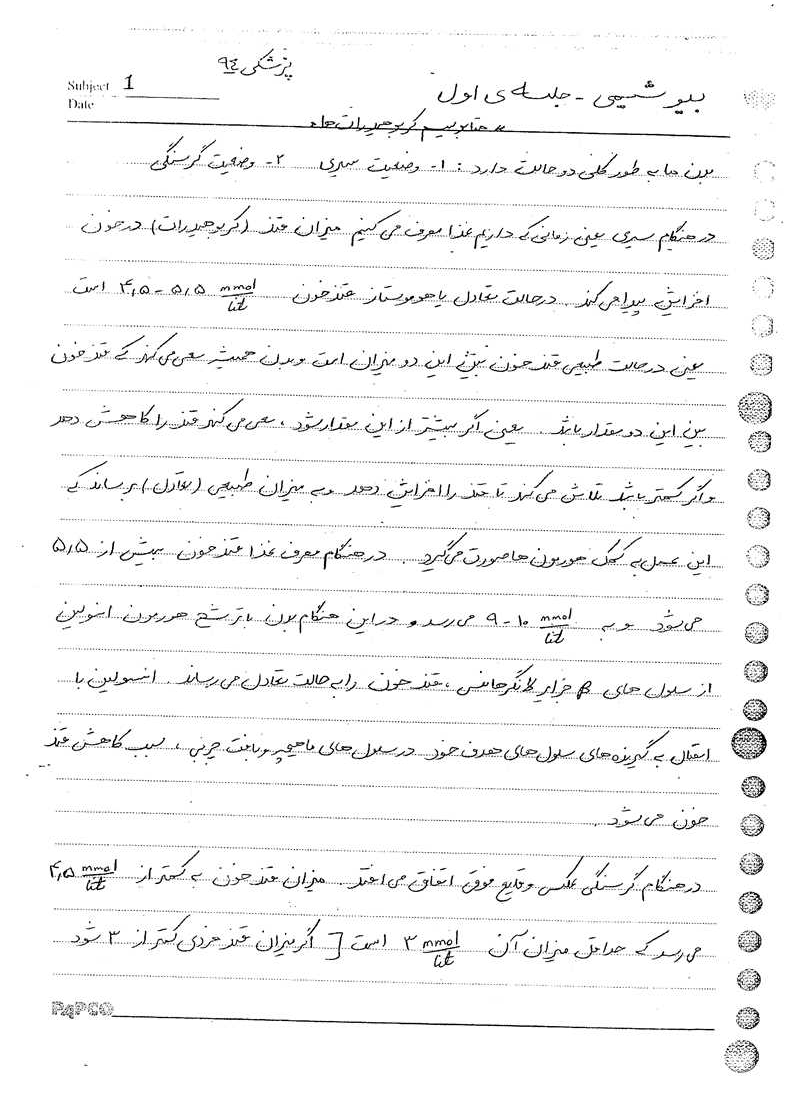 پزشکی ۹۴
Subject 1
Date
بیوشیمی - جلسه ی اول
« متابولیسم کربوهیدرات ها »
بدن ما به طور کلی دو حالت دارد : ۱- وضعیت سیری ۲- وضعیت گرسنگی
در هنگام سیری یعنی زمانی که داریم غذا مصرف می کنیم میزان قند (کربوهیدرات) در خون
افزایش پیدا می کند . در حالت تعادل یا هوموستاز قند خون ۴,۵ - ۵,۵ mmol/lit است
یعنی در حالت طبیعی قند خون بین این دو میزان است و بدن همیشه سعی می کند که قند خون
بین این دو مقدار باشد . یعنی اگر بیشتر از این مقدار شود ، سعی می کند قند را کاهش دهد
و اگر کمتر باشد تلاش می کند تا قند را افزایش دهد و به میزان طبیعی (تعادل) برساند که
این عمل به کمک هورمون ها صورت می گیرد . در هنگام مصرف غذا قند خون بیش از ۵,۵
می شود و به ۹-۱۰ mmol/lit می رسد و در این هنگام بدن با ترشح هورمون انسولین
از سلول های β جزایر لانگرهانس ، قند خون را به حالت تعادل می رساند . انسولین با
اتصال به گیرنده های سلول های هدف خود در سلول های ماهیچه و بافت چربی ، سبب کاهش قند
خون می شود .
در هنگام گرسنگی عکس وقایع فوق اتفاق می افتد . میزان قند خون به کمتر از ۴,۵ mmol/lit
می رسد که حداقل میزان آن ۳ mmol/lit است [ اگر میزان قند فردی کمتر از ۳ شود
PAPCO